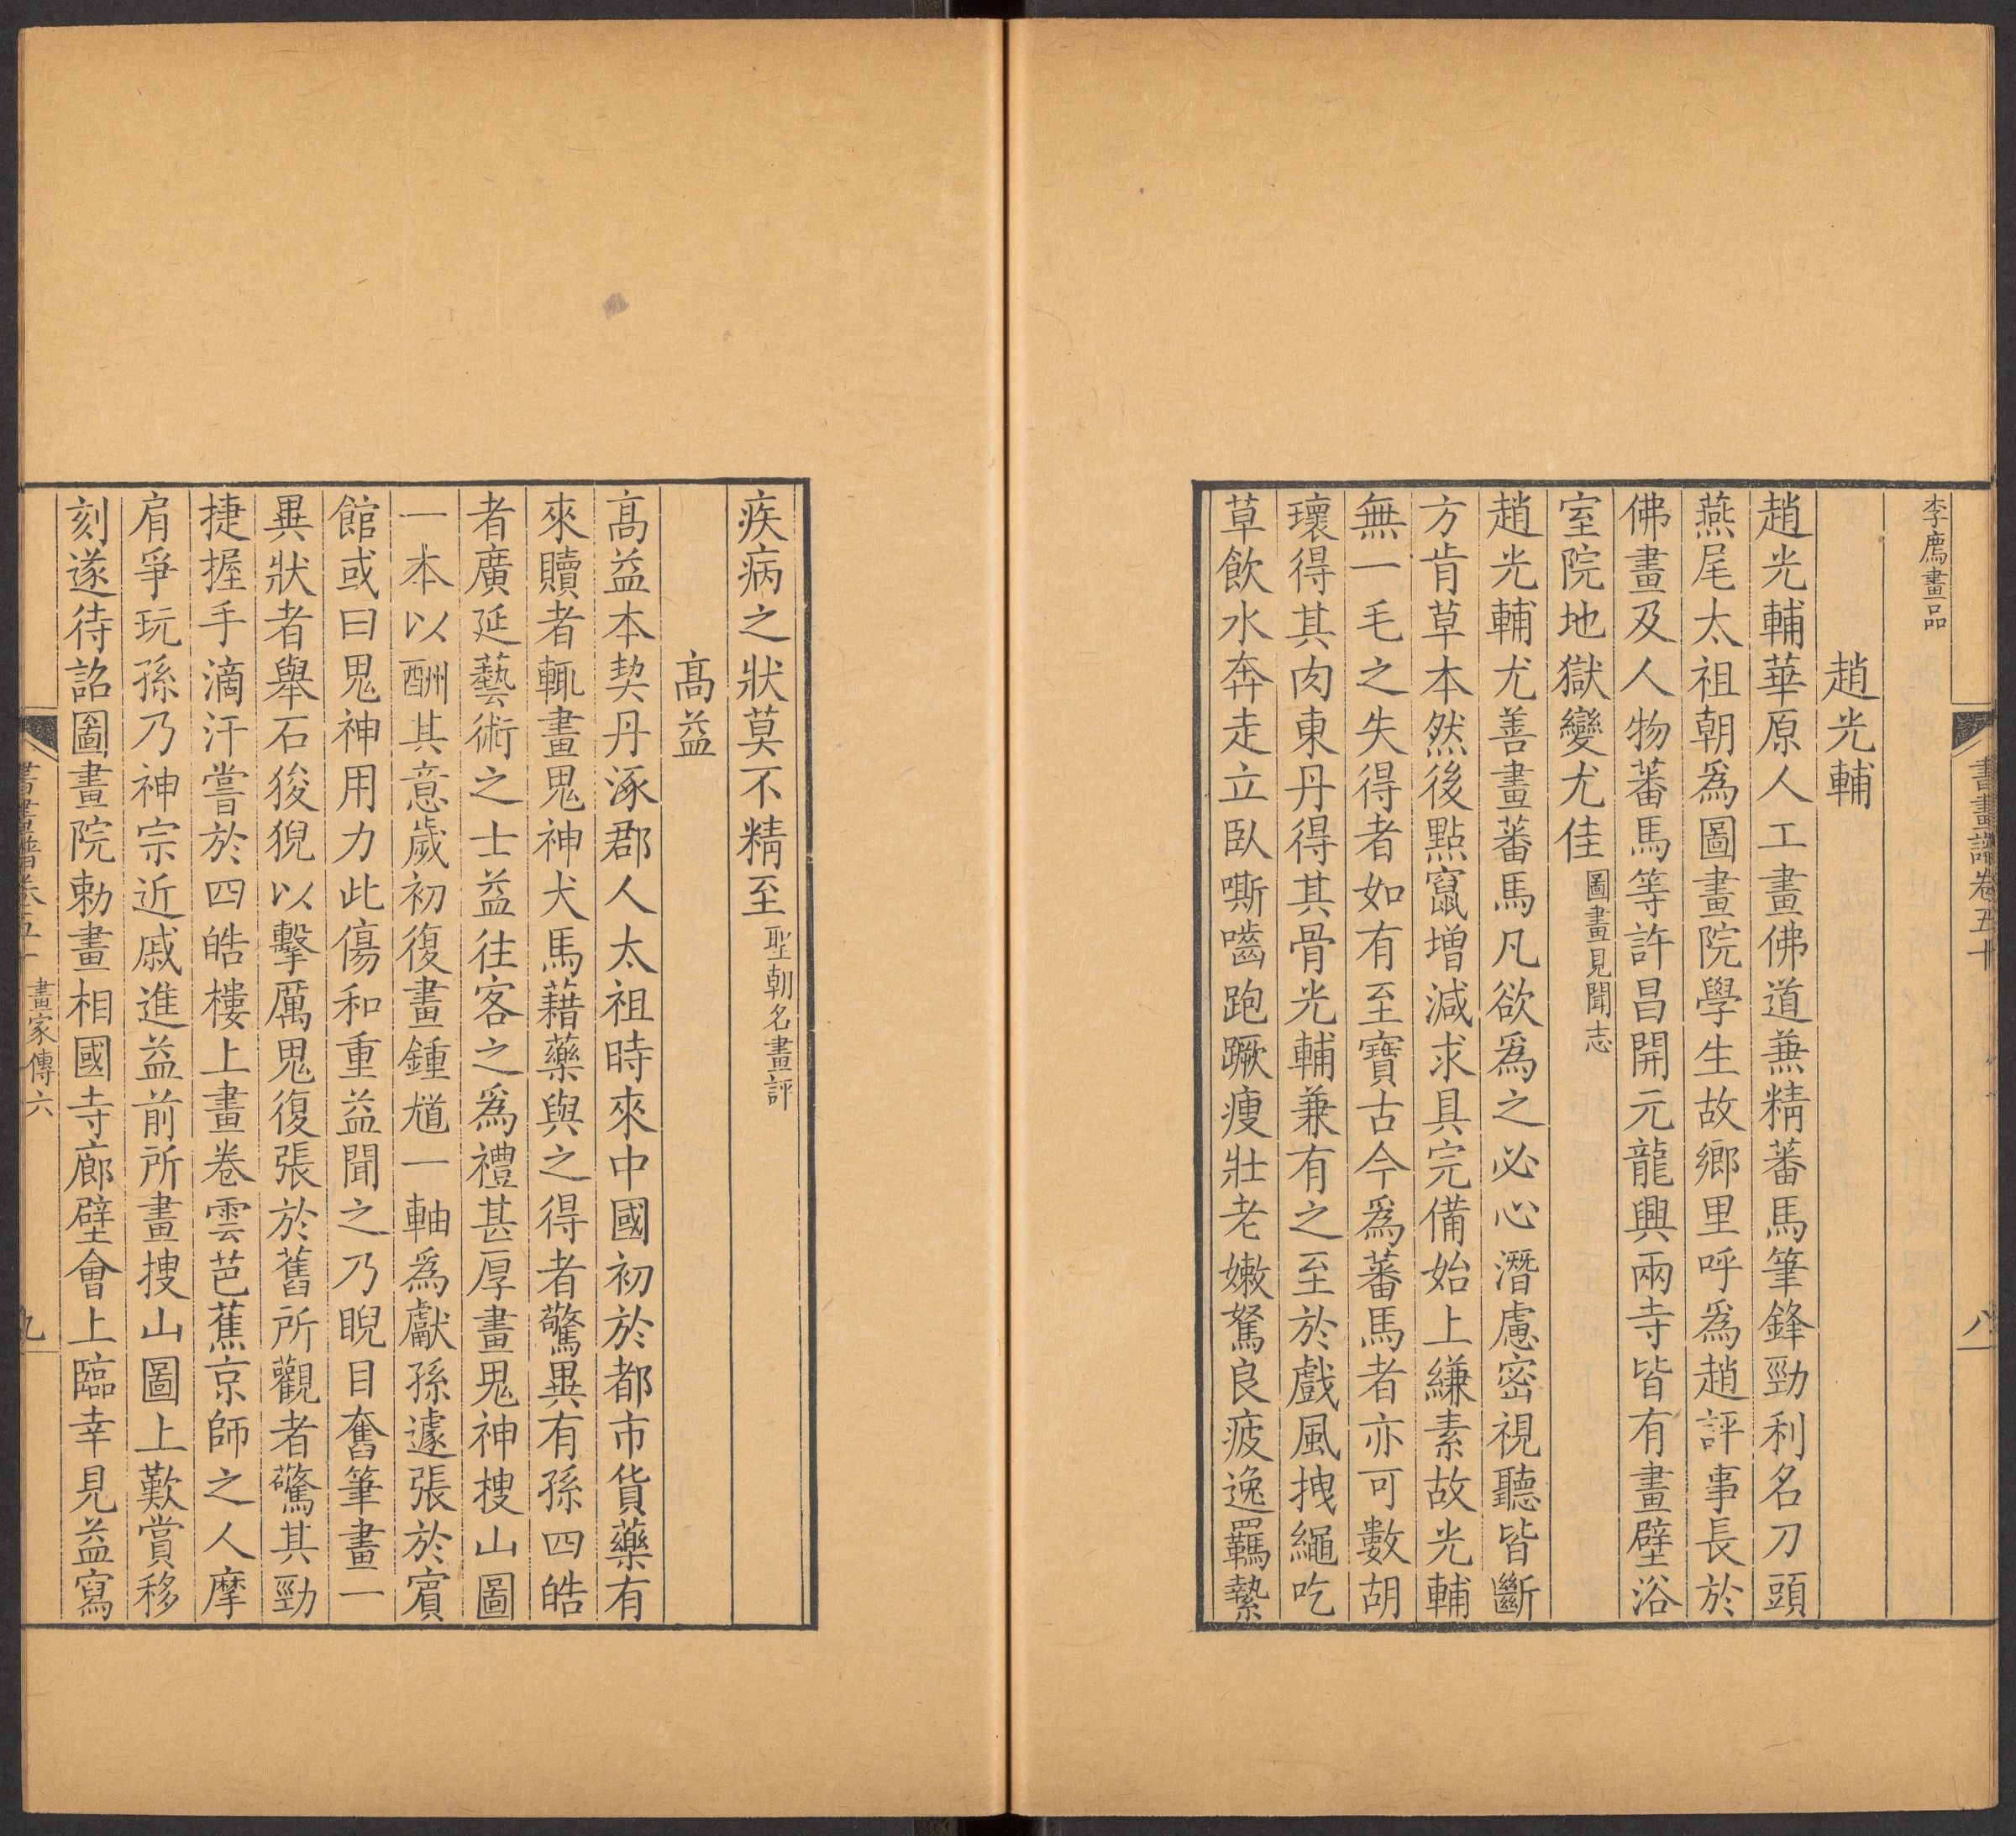 書畫譜卷五十
八
李廌畫品
趙光輔
趙光輔華原人工畫佛道兼精蕃馬筆鋒勁利名刀頭
燕尾太祖朝爲圖畫院學生故鄉里呼爲趙評事長於
佛畫及人物蕃馬等許昌開元龍興兩寺皆有畫壁浴
室院地獄變尤佳圖畫見聞志
趙光輔尤善畫蕃馬凡欲爲之必心潛慮密視聽皆斷
方肯草本然後點竄增減求具完備始上縑素故光輔
無一毛之失得者如有至寶古今爲蕃馬者亦可數胡
瓌得其肉東丹得其骨光輔兼有之至於戲風拽繩吃
草飲水奔走立臥嘶嚙跑蹶瘦壯老嫩駑良疲逸羈縶
疾病之狀莫不精至聖朝名畫評
高益
高益本契丹涿郡人太祖時來中國初於都市貨藥有
來贖者輒畫鬼神犬馬藉藥與之得者驚異有孫四皓
者廣延藝術之士益往客之爲禮甚厚畫鬼神搜山圖
一本以酬其意歲初復畫鍾馗一軸爲獻孫遽張於賓
館或曰鬼神用力此傷和重益聞之乃睨目奮筆畫一
異狀者舉石狻猊以擊厲鬼復張於舊所觀者驚其勁
捷握手滴汗嘗於四皓樓上畫卷雲芭蕉京師之人摩
肩爭玩孫乃神宗近戚進益前所畫搜山圖上歎賞移
刻遂待詔圖畫院勅畫相國寺廊壁會上臨幸見益寫
書畫譜卷五十
畫家傳六
九